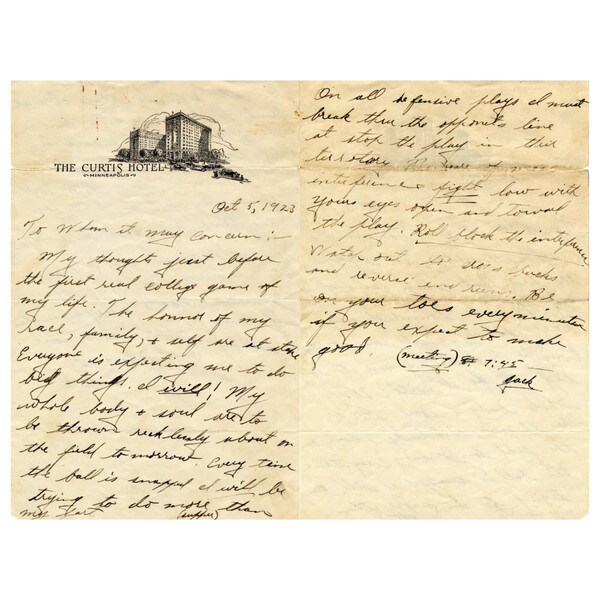 THE CURTIS HOTEL
MINNEAPOLIS
Oct 5, 1923
To Whom it may concern:-
My thoughts just before
the first real college game of
my life. The honor of my
race, family, & self are at stake
Everyone is expecting me to do
big things. I will! My
whole body & soul are to
be thrown recklessly about on
the field tomorrow. Every time
the ball is snapped I will be
trying to do more than
my part (supper)
On all defensive plays I must
break thru the opponets line
at stop the play in their
terrotory.
interference fight low with
yours eyes open and toward
the play. Roll block the interference
Watch out for cross bucks
and reverse end runs. Be
on your toes every minute
if you expect to make
good. (meeting) 7:45
Jack